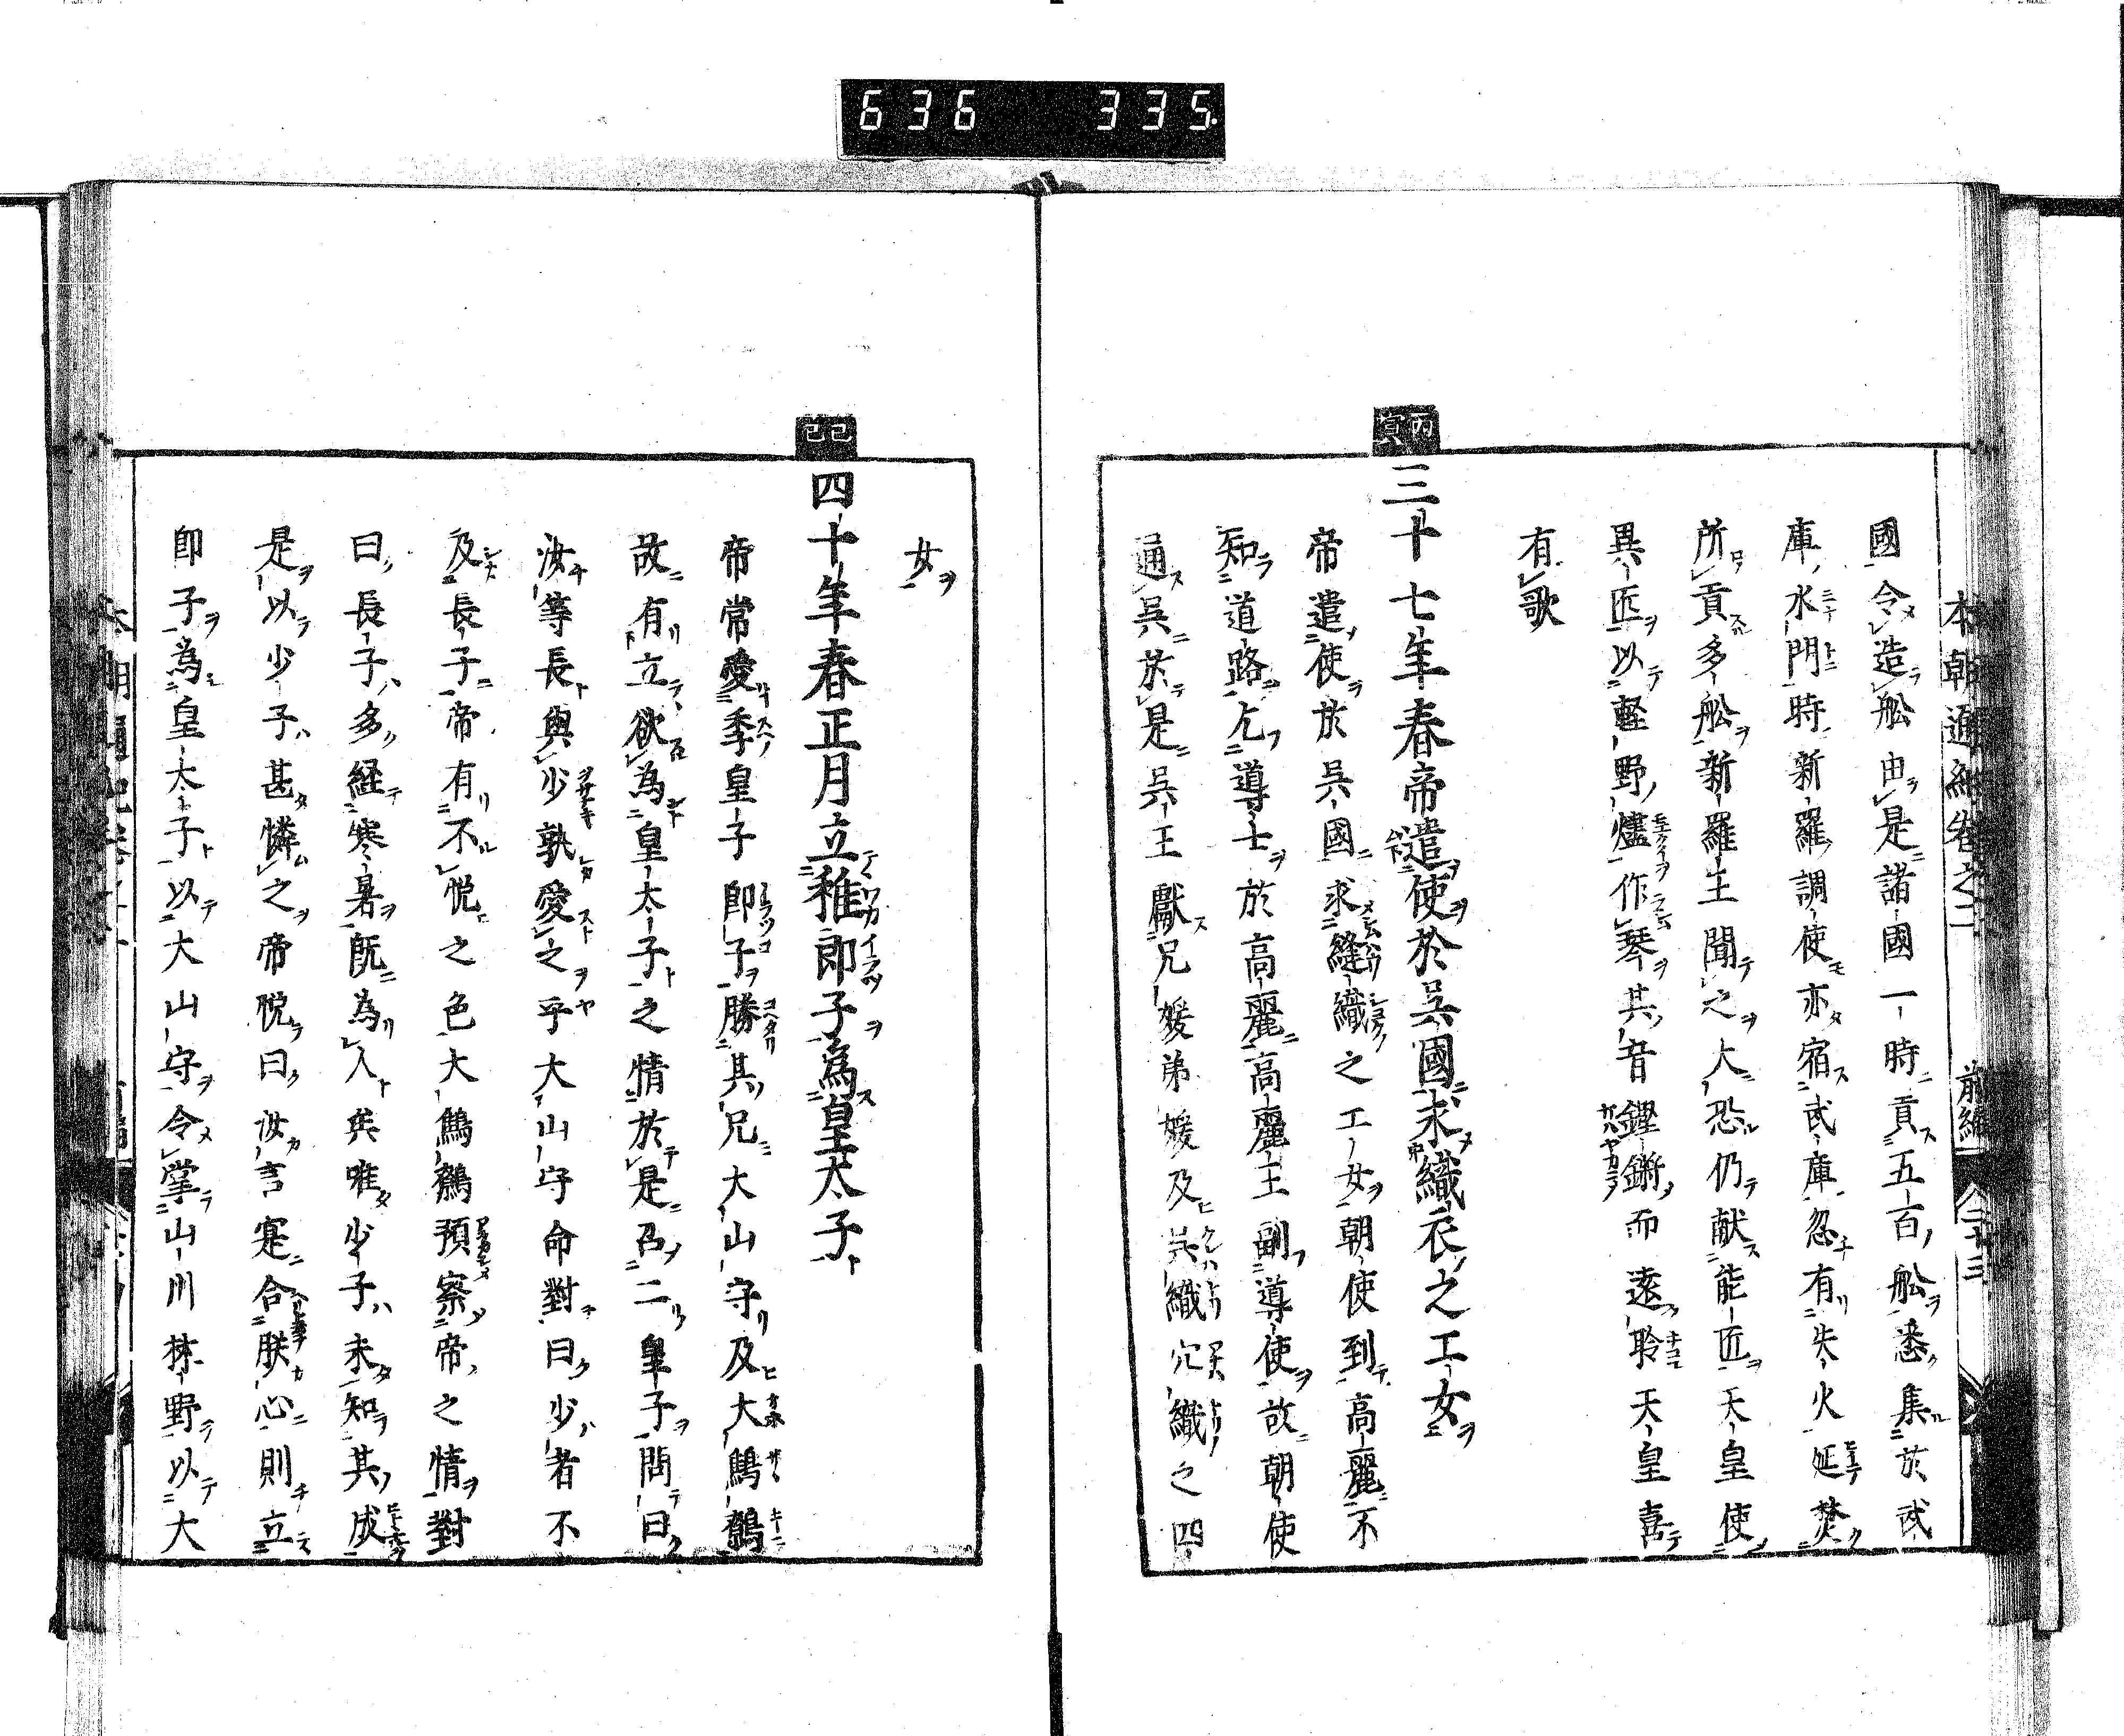 636 335.
本朝通紀巻之二 前編 二十三
國令造舩由是諸國一時貢五百舩悉集於武
庫水門時新羅調使亦宿武庫忽有失火延焚
所貢多舩新羅王聞之大恐仍献能匠天皇使
異匠以軽野燼作琴其音鏗鏘而遠聆天皇喜
有歌
丙寅
三十七年春帝遣使於呉國求織衣之工女
帝遣使於呉國求縫織之工女朝使到高麗不
知道路乞導士於高麗高麗王副導使故朝使
通呉於是呉王獻兄媛弟媛及呉織穴織之四
女
己巳
四十年春正月立稚郎子為皇太子
帝常愛季皇子郎子勝其兄大山守及大鷦鷯
故有立欲為皇太子之情於是召二皇子問曰
汝等長與少孰愛之乎大山守命對曰少者不
及長子帝有不悦之色大鷦鷯預察帝之情對
曰長子多經寒暑既為人矣唯少子未知其成
是以少子甚憐之帝悦曰汝言寔合朕心則立
郎子為皇太子以大山守令掌山川林野以大